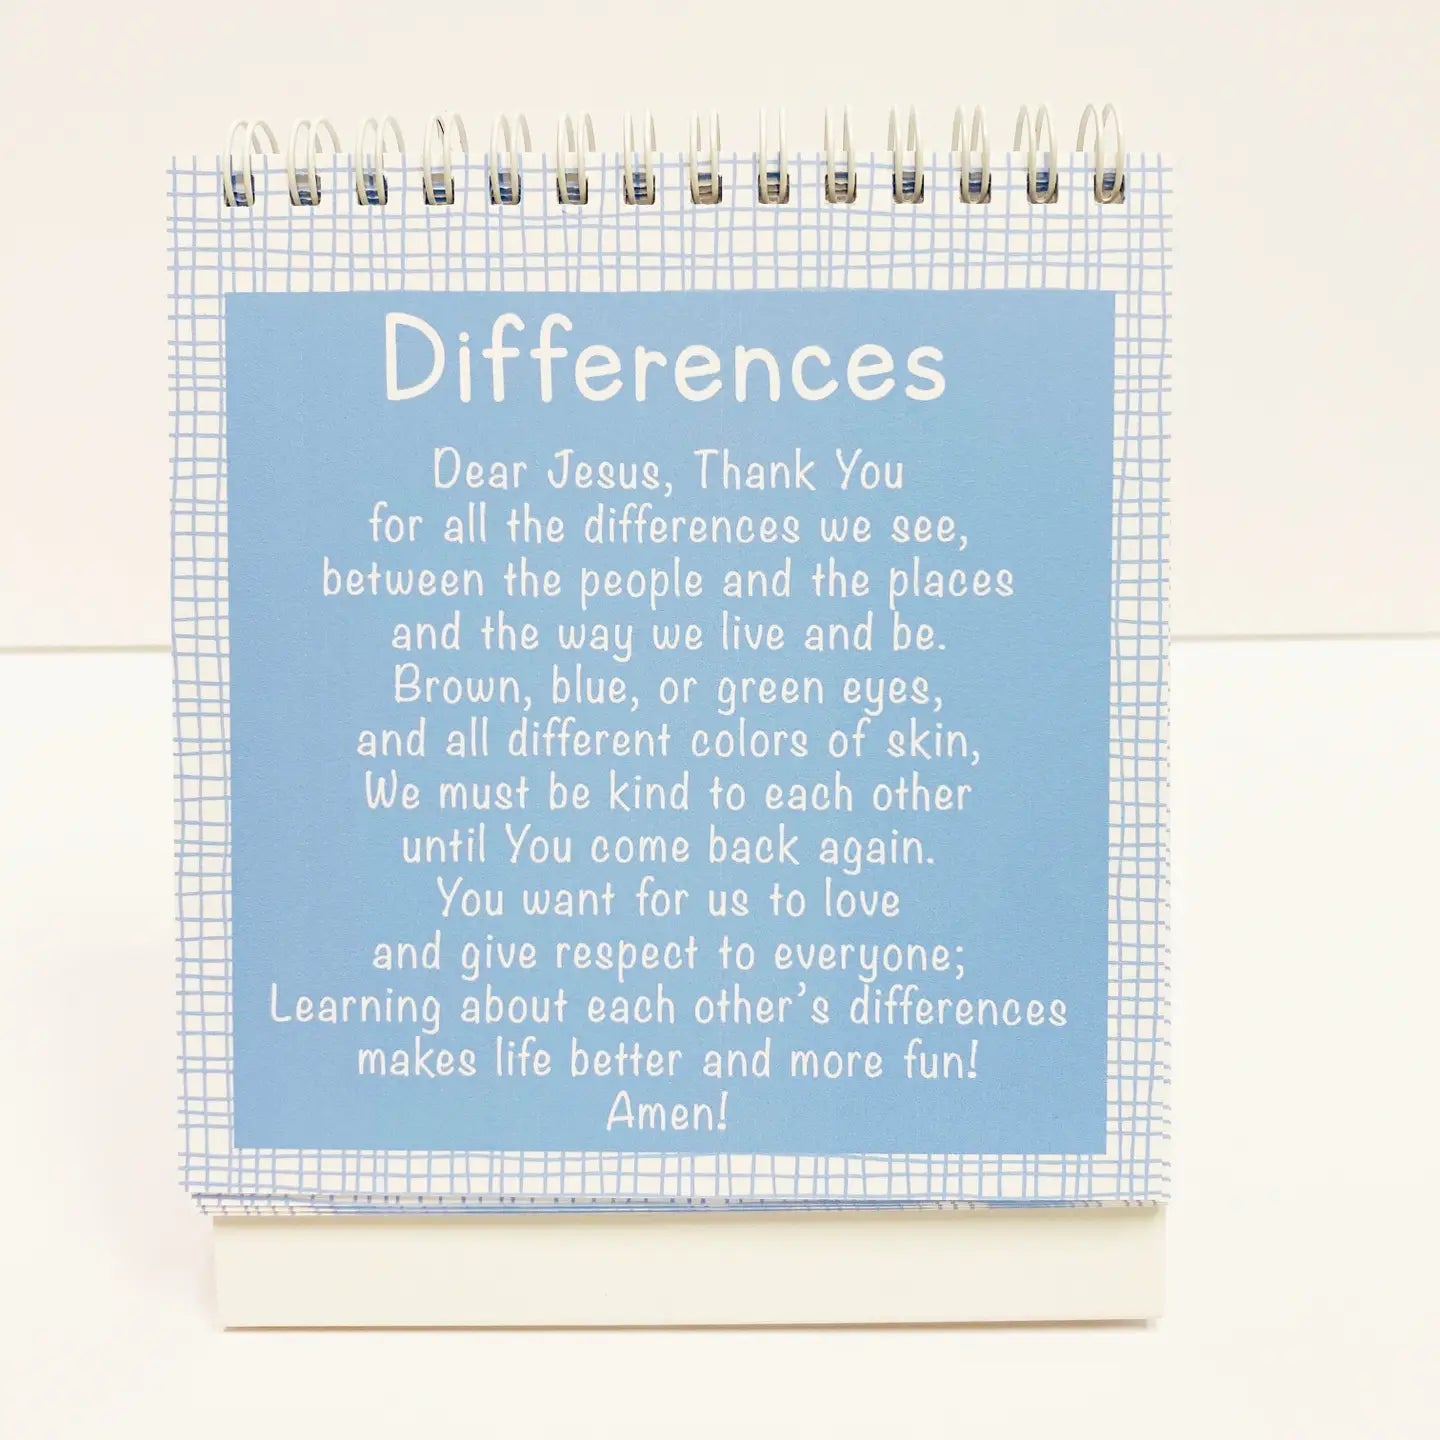 Differences
Dear Jesus, Thank You
for all the differences we see,
between the people and the places
and the way we live and be.
Brown, blue, or green eyes,
and all different colors of skin,
We must be kind to each other
until You come back again.
You want for us to love
and give respect to everyone;
Learning about each other's differences
makes life better and more fun!
Amen!